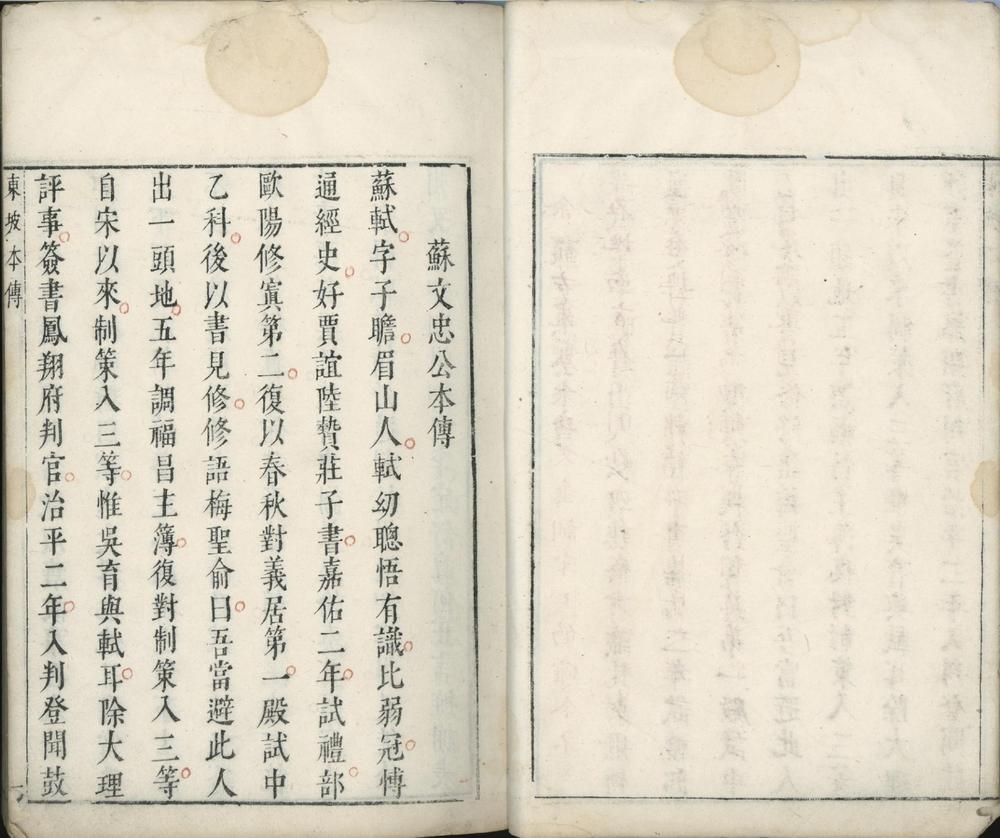 蘇文忠公本傳
蘇軾字子瞻眉山人軾幼聰悟有識比弱冠博
通經史好賈誼陸贄莊子書嘉佑二年試禮部
歐陽修寘第二復以春秋對義居第一殿試中
乙科後以書見修修語梅聖俞曰吾當避此人
出一頭地五年調福昌主簿復對制策入三等
自宋以來制策入三等惟吳育與軾耳除大理
評事簽書鳳翔府判官治平二年入判登聞鼓
東坡本傳